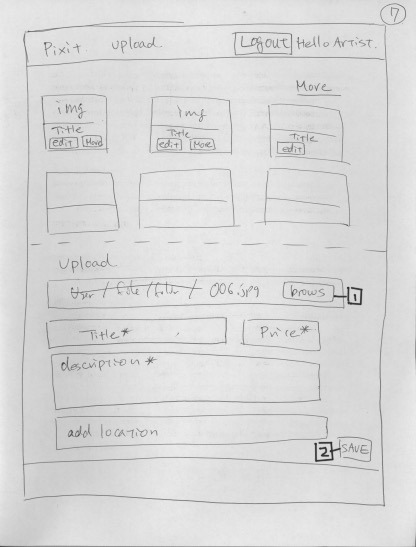 7
Pixit upload. Logout Hello Artist.
More
img img
Title Title Title
edit More edit More edit
upload
User / file / foler / 006.jpg brows 1
Title* Price*
description *
add location
2 SAVE